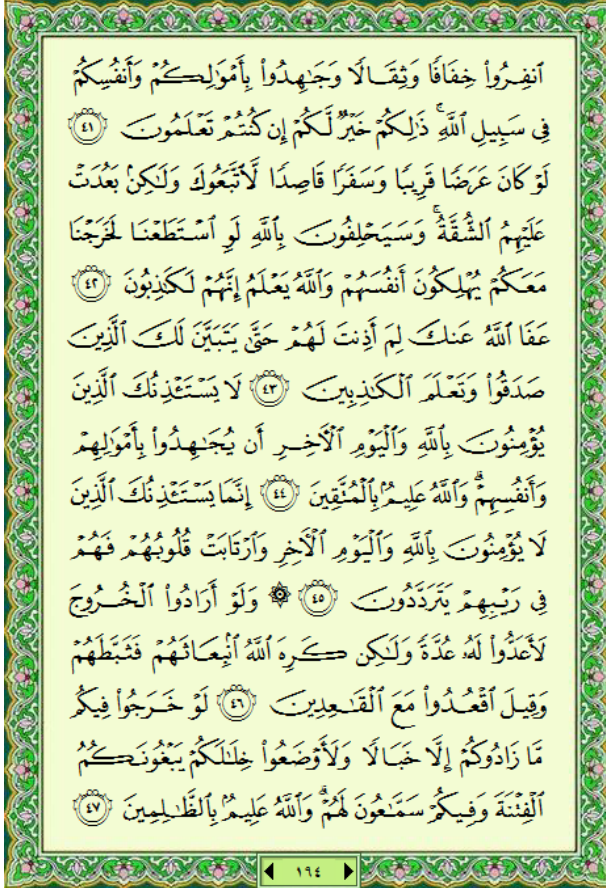 ٱنفِرُوا۟ خِفَافًا وَثِقَالًا وَجَـٰهِدُوا۟ بِأَمْوَٰلِكُمْ وَأَنفُسِكُمْ
فِى سَبِيلِ ٱللَّهِ ۚ ذَٰلِكُمْ خَيْرٌ لَّكُمْ إِن كُنتُمْ تَعْلَمُونَ ﴿٤١﴾
لَوْ كَانَ عَرَضًا قَرِيبًا وَسَفَرًا قَاصِدًا لَّٱتَّبَعُوكَ وَلَـٰكِنۢ بَعُدَتْ
عَلَيْهِمُ ٱلشُّقَّةُ ۚ وَسَيَحْلِفُونَ بِٱللَّهِ لَوِ ٱسْتَطَعْنَا لَخَرَجْنَا
مَعَكُمْ يُهْلِكُونَ أَنفُسَهُمْ وَٱللَّهُ يَعْلَمُ إِنَّهُمْ لَكَـٰذِبُونَ ﴿٤٢﴾
عَفَا ٱللَّهُ عَنكَ لِمَ أَذِنتَ لَهُمْ حَتَّىٰ يَتَبَيَّنَ لَكَ ٱلَّذِينَ
صَدَقُوا۟ وَتَعْلَمَ ٱلْكَـٰذِبِينَ ﴿٤٣﴾ لَا يَسْتَـْٔذِنُكَ ٱلَّذِينَ
يُؤْمِنُونَ بِٱللَّهِ وَٱلْيَوْمِ ٱلْـَٔاخِرِ أَن يُجَـٰهِدُوا۟ بِأَمْوَٰلِهِمْ
وَأَنفُسِهِمْ ۗ وَٱللَّهُ عَلِيمٌۢ بِٱلْمُتَّقِينَ ﴿٤٤﴾ إِنَّمَا يَسْتَـْٔذِنُكَ ٱلَّذِينَ
لَا يُؤْمِنُونَ بِٱللَّهِ وَٱلْيَوْمِ ٱلْـَٔاخِرِ وَٱرْتَابَتْ قُلُوبُهُمْ فَهُمْ
فِى رَيْبِهِمْ يَتَرَدَّدُونَ ﴿٤٥﴾ ۞ وَلَوْ أَرَادُوا۟ ٱلْخُرُوجَ
لَأَعَدُّوا۟ لَهُۥ عُدَّةً وَلَـٰكِن كَرِهَ ٱللَّهُ ٱنۢبِعَاثَهُمْ فَثَبَّطَهُمْ
وَقِيلَ ٱقْعُدُوا۟ مَعَ ٱلْقَـٰعِدِينَ ﴿٤٦﴾ لَوْ خَرَجُوا۟ فِيكُم
مَّا زَادُوكُمْ إِلَّا خَبَالًا وَلَأَوْضَعُوا۟ خِلَـٰلَكُمْ يَبْغُونَكُمُ
ٱلْفِتْنَةَ وَفِيكُمْ سَمَّـٰعُونَ لَهُمْ ۗ وَٱللَّهُ عَلِيمٌۢ بِٱلظَّـٰلِمِينَ ﴿٤٧﴾
١٩٤